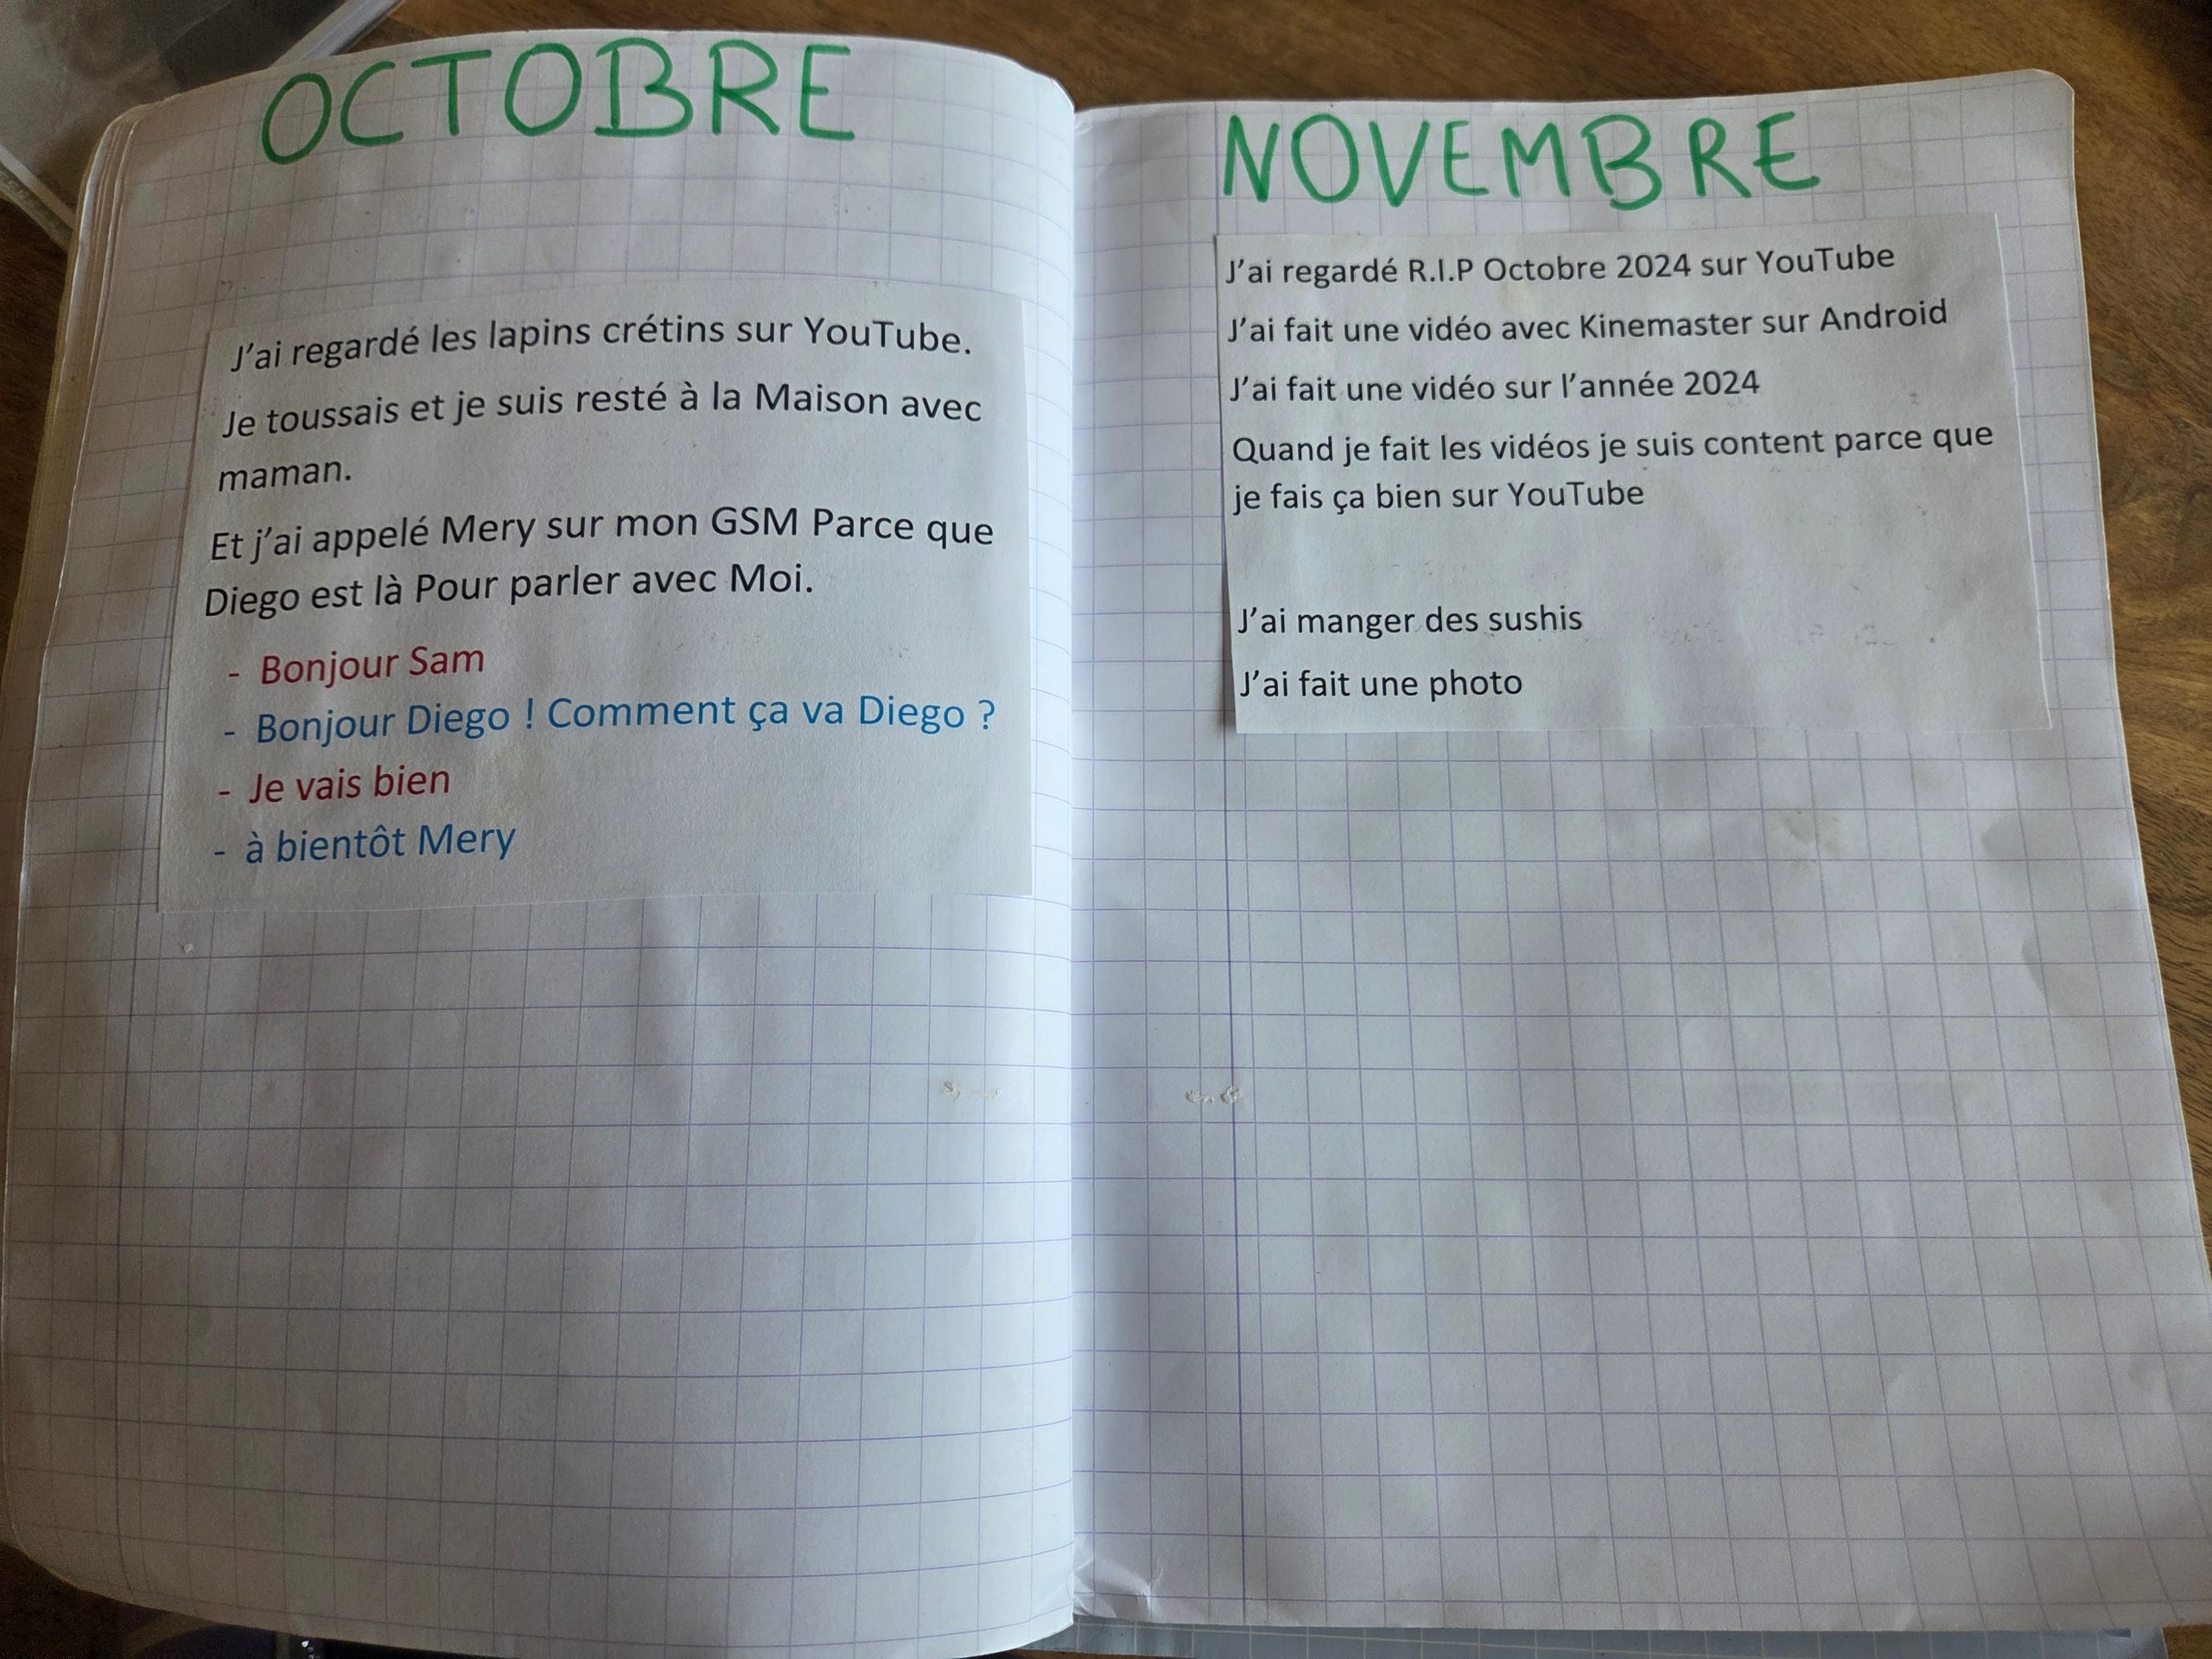 OCTOBRE
J'ai regardé les lapins crétins sur YouTube.
Je toussais et je suis resté à la Maison avec
maman.
Et j'ai appelé Mery sur mon GSM Parce que
Diego est là Pour parler avec Moi.
- Bonjour Sam
- Bonjour Diego ! Comment ça va Diego ?
- Je vais bien
- à bientôt Mery
NOVEMBRE
J'ai regardé R.I.P Octobre 2024 sur YouTube
J'ai fait une vidéo avec Kinemaster sur Android
J'ai fait une vidéo sur l'année 2024
Quand je fait les vidéos je suis content parce que
je fais ça bien sur YouTube
J'ai manger des sushis
J'ai fait une photo